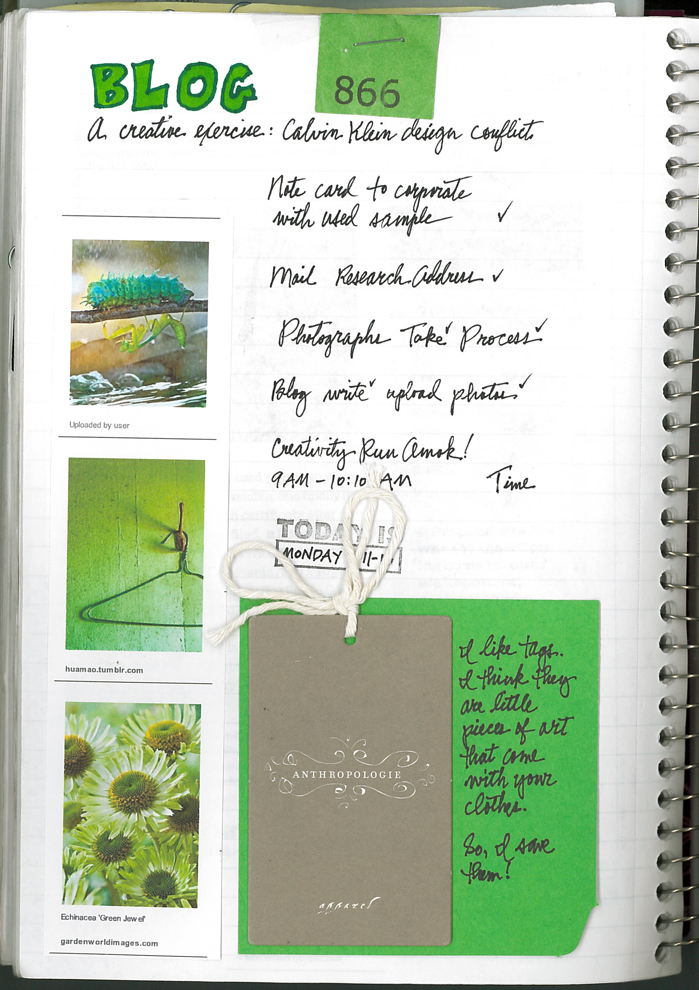 BLOG
866
A creative exercise: Calvin Klein design conflict
Note card to corporate
with used sample ✓
Mail Research Address ✓
Photographs Take ✓ Process ✓
Blog write ✓ upload photos ✓
Creativity Run Amok!
9AM - 10:10 AM Time
TODAY IS
MONDAY 11-1
Uploaded by user
huamao.tumblr.com
Echinacea 'Green Jewel'
gardenworldimages.com
ANTHROPOLOGIE
apparel
I like tags.
I think they
are little
pieces of art
that come
with your
clothes.
So, I save
them!